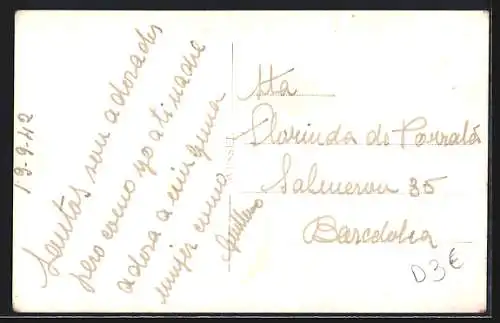 19-9-42
Santas sem adorades
pero como yo a ti nadie
adora a ninguna
mujer como
Guillermo
Sta
Florinda de Corralá
Salmeron 35
Barcelona
D3€